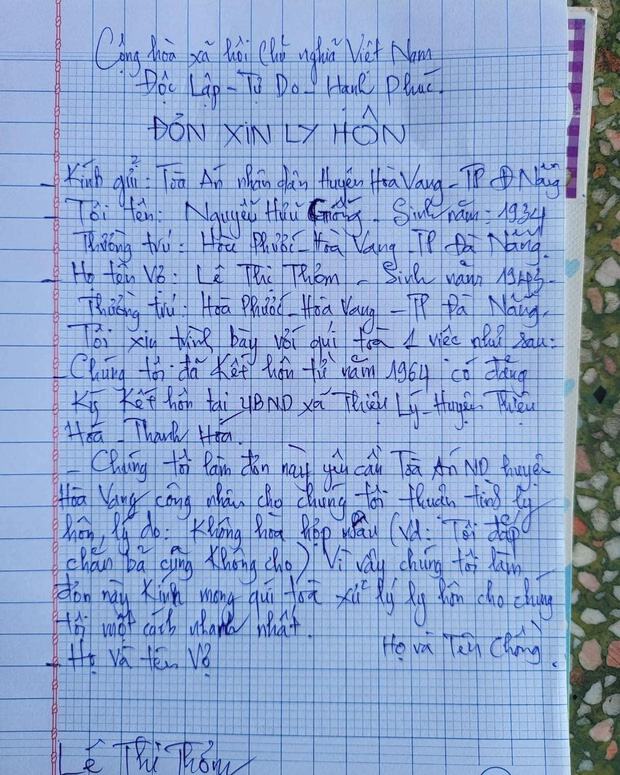 Cộng hòa xã hội Chủ nghĩa Việt Nam
Độc Lập - Tự Do - Hạnh Phúc.
ĐƠN XIN LY HÔN
- Kính gửi: Tòa Án nhân dân Huyện Hòa Vang - TP Đ Nẵng
- Tôi tên: Nguyễn Hữu Giống - Sinh năm: 1934
Thường trú: Hòa Phước - Hòa Vang - TP Đà Nẵng.
- Họ tên Vợ: Lê Thị Thơm - Sinh năm 1943-
Thường trú: Hòa Phước - Hòa Vang - TP Đà Nẵng.
Tôi xin trình bày với quí tòa 1 việc như sau:
- Chúng tôi đã Kết hôn từ năm 1964 có đăng
Ký Kết hôn tại UBND xã Thiệu Lý - Huyện Thiệu
Hoá - Thanh Hóa.
- Chúng tôi làm đơn này yêu cầu Tòa Án ND huyện
Hòa Vang công nhân cho chúng tôi thuận tình ly
hôn, lý do: Không hòa hợp nhau (Vd: Tôi đắp
chăn bà cũng Không cho) Vì vậy chúng tôi làm
đơn này Kính mong quí toà xử lý ly hôn cho chúng
tôi một cách nhanh nhất.
Họ và Tên Chồng.
- Họ và tên Vợ
Lê Thị Thơm